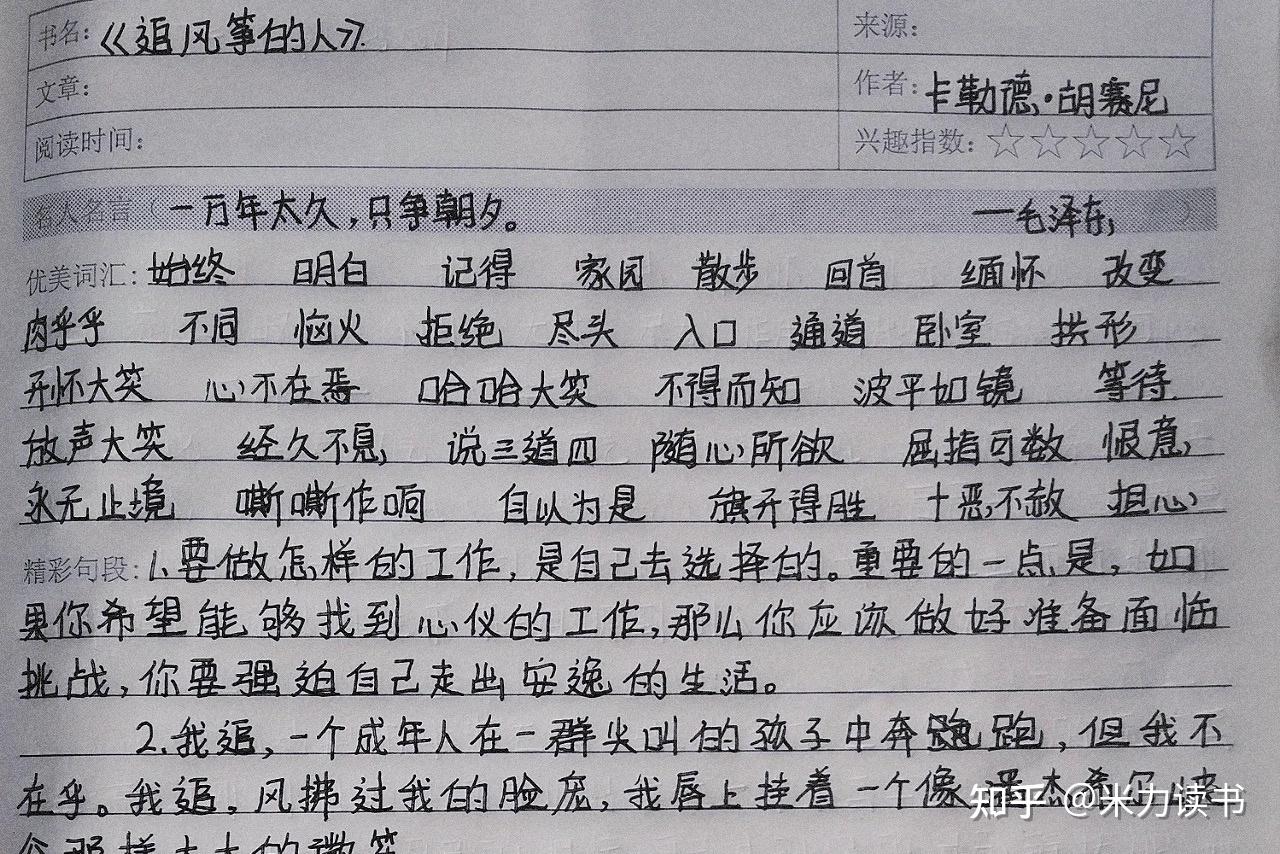 书名：《追风筝的人》. 来源：
文章： 作者：卡勒德·胡赛尼
阅读时间： 兴趣指数：☆☆☆☆☆
名人名言（一万年太久，只争朝夕。 ——毛泽东）
优美词汇：始终 明白 记得 家园 散步 回首 缅怀 改变
肉乎乎 不同 恼火 拒绝 尽头 入口 通道 卧室 拱形
开怀大笑 心不在焉 哈哈大笑 不得而知 波平如镜 等待
放声大笑 经久不息 说三道四 随心所欲 屈指可数 恨意
永无止境 嘶嘶作响 自以为是 旗开得胜 十恶不赦 担心
精彩句段：1、要做怎样的工作，是自己去选择的。重要的一点是，如
果你希望能够找到心仪的工作，那么你应该做好准备面临
挑战，你要强迫自己走出安逸的生活。
2.我追，一个成年人在一群尖叫的孩子中奔跑跑，但我不
在乎。我追，风拂过我的脸庞，我唇上挂着一个像潘杰希尔峡
谷那样大大的微笑
知乎 @米力读书